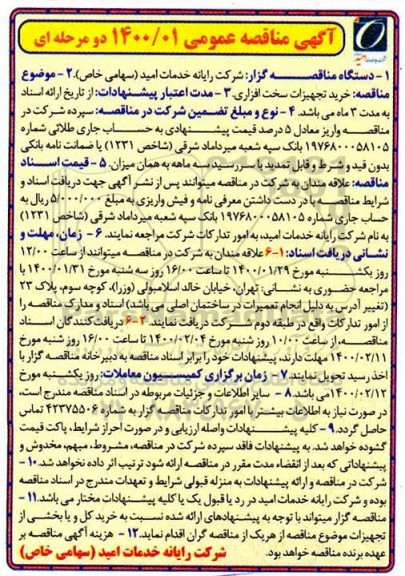 آگهی مناقصه عمومی ۱۴۰۰/۰۱ دو مرحله ای
۱ - دستگاه مناقصه گزار: شرکت رایانه خدمات امید (سهامی خاص). ۲ - موضوع
مناقصه: خرید تجهیزات سخت افزاری. ۳ - مدت اعتبار پیشنهادات: از تاریخ ارائه اسناد
به مدت ۳ ماه می باشد. ۴ - نوع و مبلغ تضمین شرکت در مناقصه: سپرده شرکت در
مناقصه واریز معادل ۵ درصد قیمت پیشنهادی به حساب جاری طلائی شماره
۱۹۷۶۸۰۰۰۵۸۱۰۵ بانک سپه شعبه میرداماد شرقی (شاخص ۱۲۳۱) یا ضمانت نامه بانکی
بدون قید و شرط و قابل تمدید با سررسید سه ماهه به همان میزان. ۵ - قیمت اسناد
مناقصه: علاقه مندان به شرکت در مناقصه میتوانند پس از نشر آگهی جهت دریافت اسناد و
شرایط مناقصه با در دست داشتن معرفی نامه و فیش واریزی به مبلغ ۵/۰۰۰/۰۰۰ ریال به
حساب جاری شماره ۱۹۷۶۸۰۰۰۵۸۱۰۵ بانک سپه شعبه میرداماد شرقی (شاخص ۱۲۳۱)
به نام شرکت رایانه خدمات امید، به امور تدارکات شرکت مراجعه نمایند. ۶ - زمان، مهلت و
نشانی دریافت اسناد: ۱-۶ علاقه مندان به شرکت در مناقصه میتوانند از ساعت ۱۲/۰۰
روز یکشنبه مورخ ۱۴۰۰/۰۱/۲۹ تا ساعت ۱۶/۰۰ روز سه شنبه مورخ ۱۴۰۰/۰۱/۳۱ با
مراجعه حضوری به نشانی: تهران، خیابان خالد اسلامبولی (وزرا)، کوچه سوم، پلاک ۲۳
(تغییر آدرس به دلیل انجام تعمیرات در ساختمان اصلی می باشد) اسناد و مدارک مناقصه را
از امور تدارکات واقع در طبقه دوم شرکت دریافت نمایند. ۲-۶ دریافت کنندگان اسناد
مناقصه، از ساعت ۱۰/۰۰ روز شنبه مورخ ۱۴۰۰/۰۲/۰۴ تا ساعت ۱۶/۰۰ روز شنبه مورخ
۱۴۰۰/۰۲/۱۱ مهلت دارند، پیشنهادات خود را برابر اسناد مناقصه به دبیرخانه مناقصه گزار با
اخذ رسید تحویل نمایند. ۷ - زمان برگزاری کمیسیون معاملات: روز یکشنبه مورخ
۱۴۰۰/۰۲/۱۲ می باشد. ۸ - سایر اطلاعات و جزئیات مربوطه در اسناد مناقصه مندرج است،
در صورت نیاز به اطلاعات بیشتر با امور تدارکات مناقصه گزار به شماره ۴۲۳۷۵۵۰۶ تماس
حاصل گردد. ۹ - کلیه پیشنهادات واصله ارزیابی و در صورت احراز شرایط، پاکت قیمت
گشوده خواهد شد. به پیشنهادات فاقد سپرده شرکت در مناقصه، مشروط، مبهم، مخدوش و
پیشنهاداتی که بعد از انقضاء مدت مقرر در مناقصه ارائه شود ترتیب اثر داده نخواهد شد. ۱۰ -
شرکت در مناقصه و ارائه پیشنهادات به منزله قبولی شرایط و تعهدات مندرج در اسناد مناقصه
بوده و شرکت رایانه خدمات امید در رد یا قبول یک یا کلیه پیشنهادات مختار می باشد. ۱۱ -
مناقصه گزار میتواند با توجه به پیشنهادهای ارائه شده نسبت به خرید کل و یا بخشی از
تجهیزات موضوع مناقصه از هریک از مناقصه گران اقدام نماید. ۱۲ - هزینه آگهی مناقصه بر
عهده برنده مناقصه خواهد بود. شرکت رایانه خدمات امید (سهامی خاص)